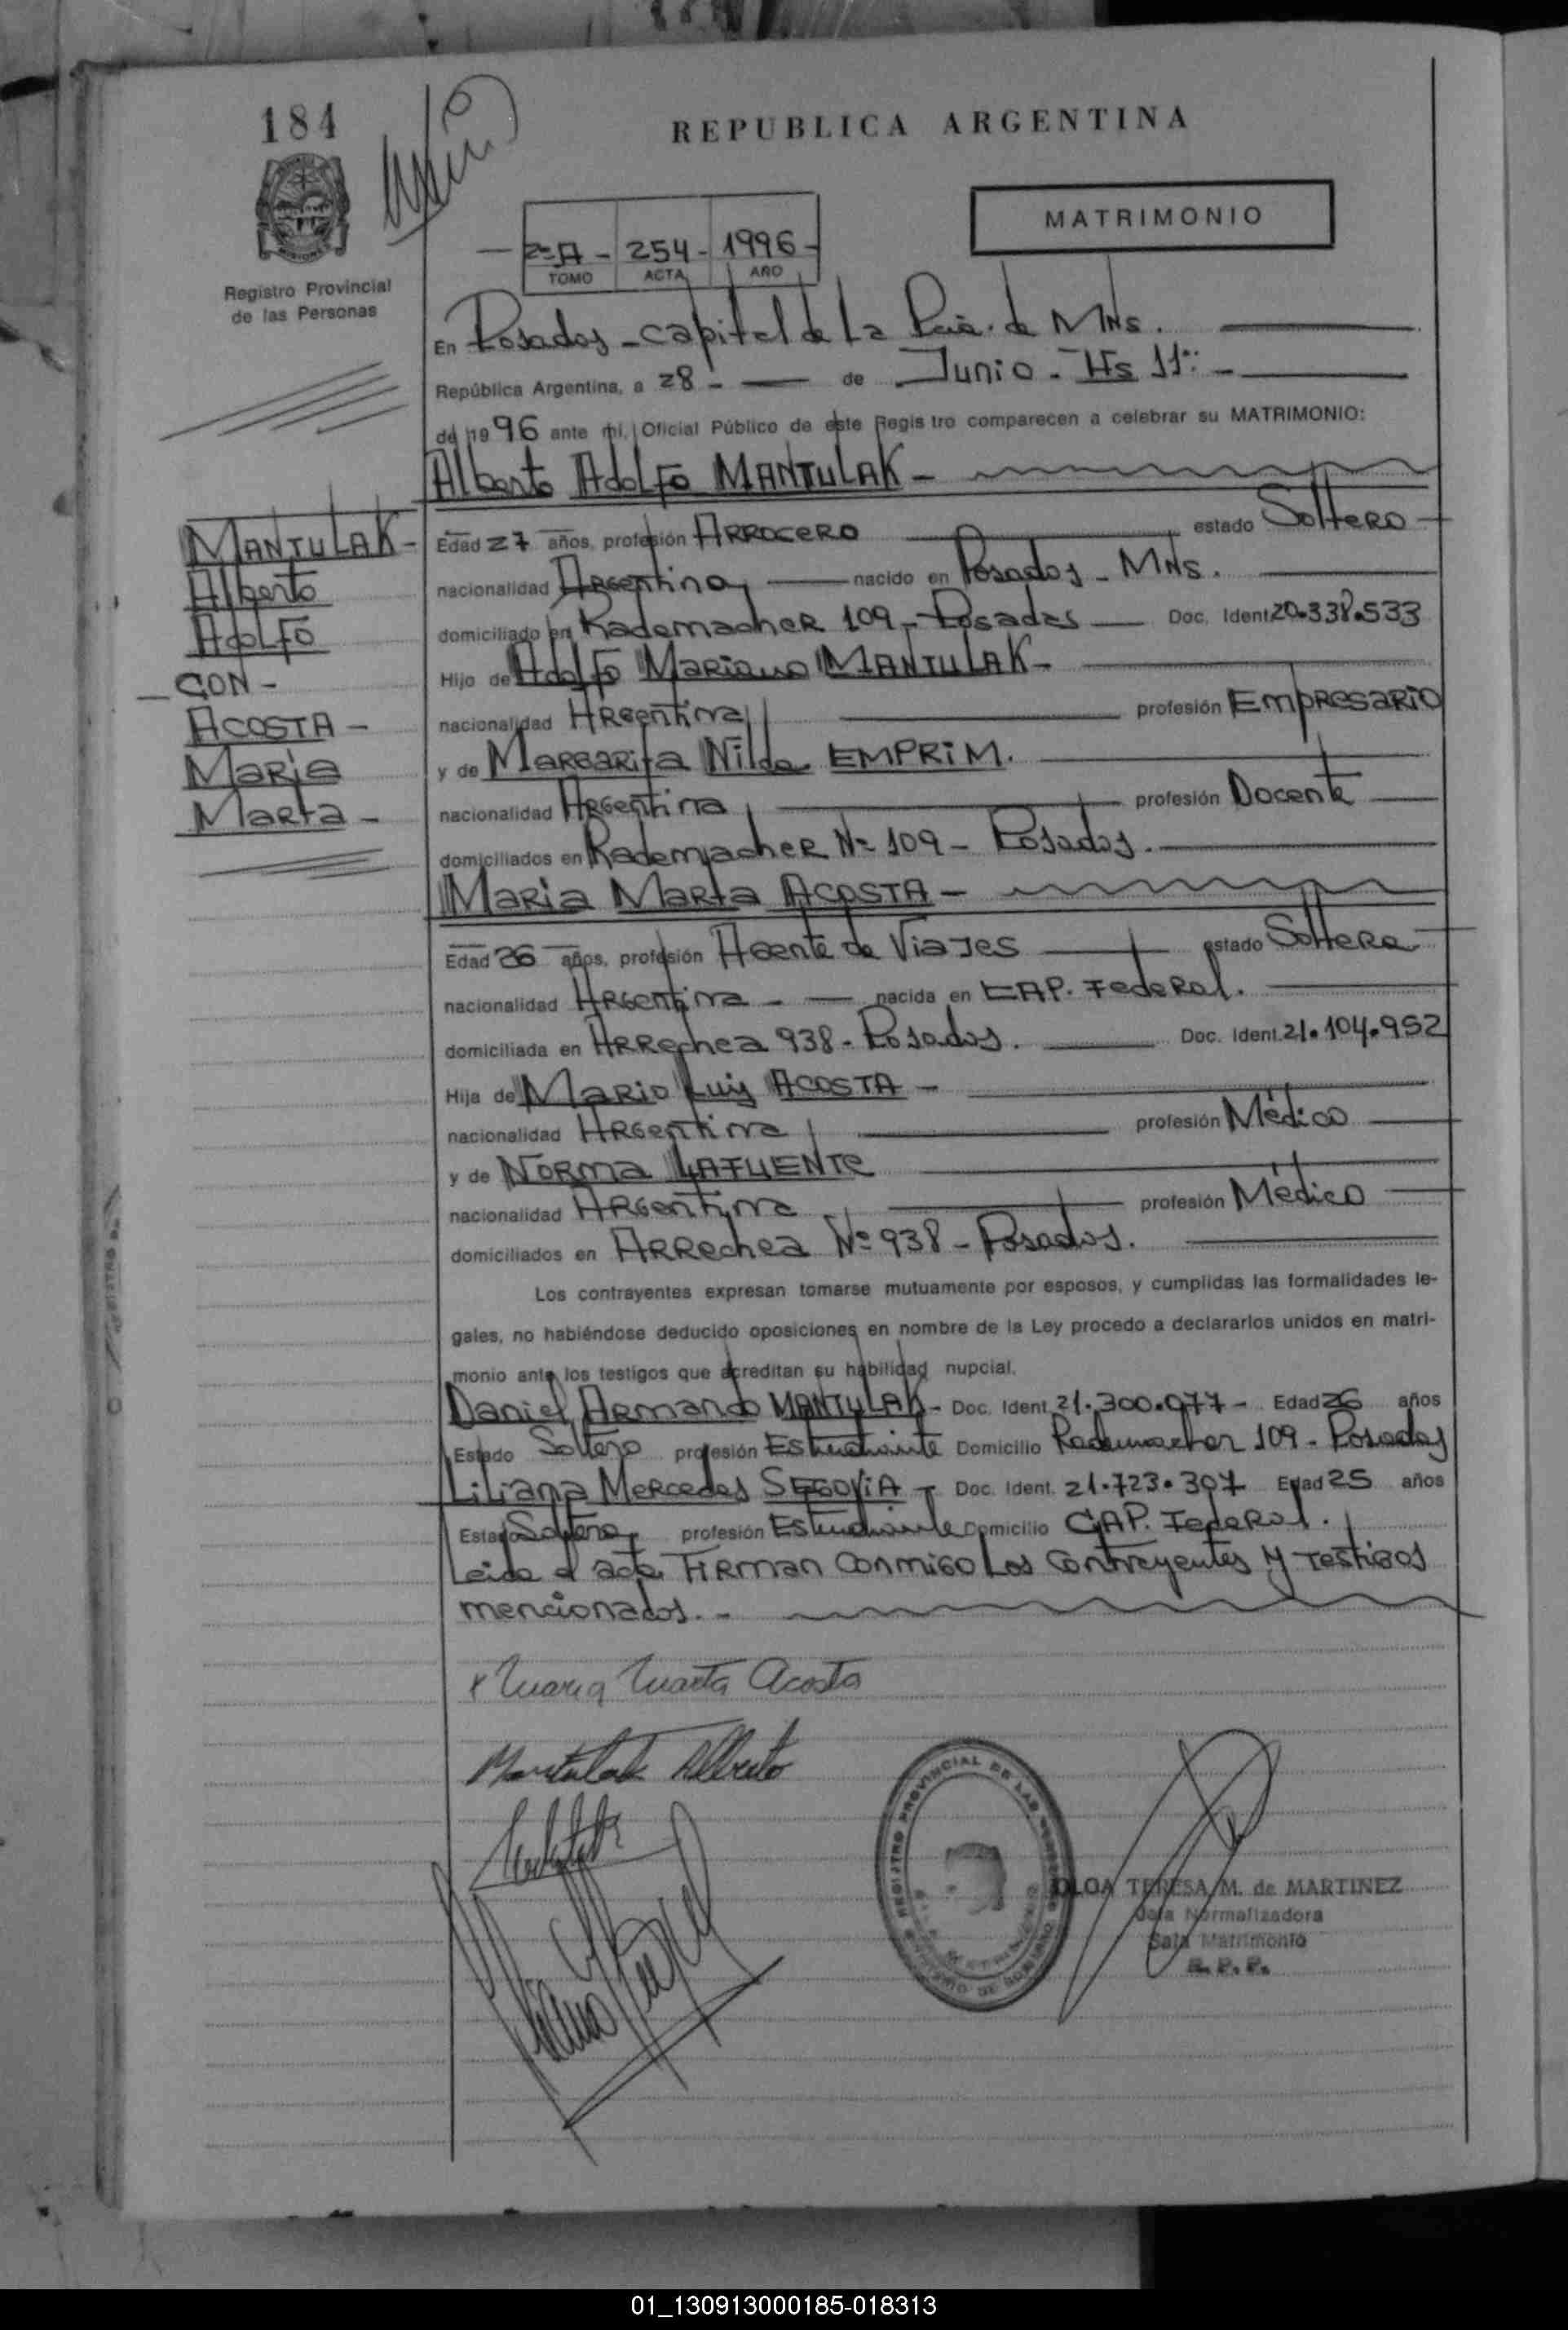 184
REPUBLICA ARGENTINA
MATRIMONIO
2=A - 254 - 1996 -
TOMO ACTA AÑO
Registro Provincial
de las Personas
En Posadas - Capital de La Pcia. de Mns.
República Argentina, a 28 - de Junio - Hs 11:
de 19 96 ante mí, Oficial Público de este Registro comparecen a celebrar su MATRIMONIO:
Alberto Adolfo MANTULAK -
MANTULAK -
Alberto
Adolfo
- CON -
ACOSTA -
Maria
Marta -
Edad 27 años, profesión ARROCERO estado Soltero
nacionalidad Argentina, nacido en Posadas - Mns.
domiciliado en Rademacher 109 - Posadas Doc. Ident. 20.338.533
Hijo de Adolfo Mariano MANTULAK -
nacionalidad Argentina, profesión Empresario
y de Margarita Nilda EMPRIM.
nacionalidad Argentina, profesión Docente
domiciliados en Rademacher Nº 109 - Posadas.
Maria Marta ACOSTA -
Edad 26 años, profesión Agente de Viajes estado Soltera
nacionalidad Argentina - nacida en CAP. Federal.
domiciliada en Arrechea 938 - Posadas. Doc. Ident. 21.104.952
Hija de Mario Luis ACOSTA -
nacionalidad Argentina, profesión Médico
y de Norma LAFUENTE
nacionalidad Argentina profesión Médico
domiciliados en Arrechea Nº 938 - Posadas.
Los contrayentes expresan tomarse mutuamente por esposos, y cumplidas las formalidades le-
gales, no habiéndose deducido oposiciones en nombre de la Ley procedo a declararlos unidos en matri-
monio ante los testigos que acreditan su habilidad nupcial.
Daniel Armando MANTULAK - Doc. Ident. 21.300.077 - Edad 26 años
Estado Soltero profesión Estudiante Domicilio Rademacher 109 - Posadas
Liliana Mercedes SEGOVIA - Doc. Ident. 21.723.307 Edad 25 años
Estado Soltera, profesión Estudiante Domicilio CAP. Federal.
Leida el acta Firman conmigo Los Contrayentes y Testigos
mencionados. -
x Maria Marta Acosta
Mantulak Alberto
REGISTRO PROVINCIAL DE LAS PERSONAS
OLGA TERESA M. de MARTINEZ
Jefa Normalizadora
Sala Matrimonio
R. P. P.
01_130913000185-018313